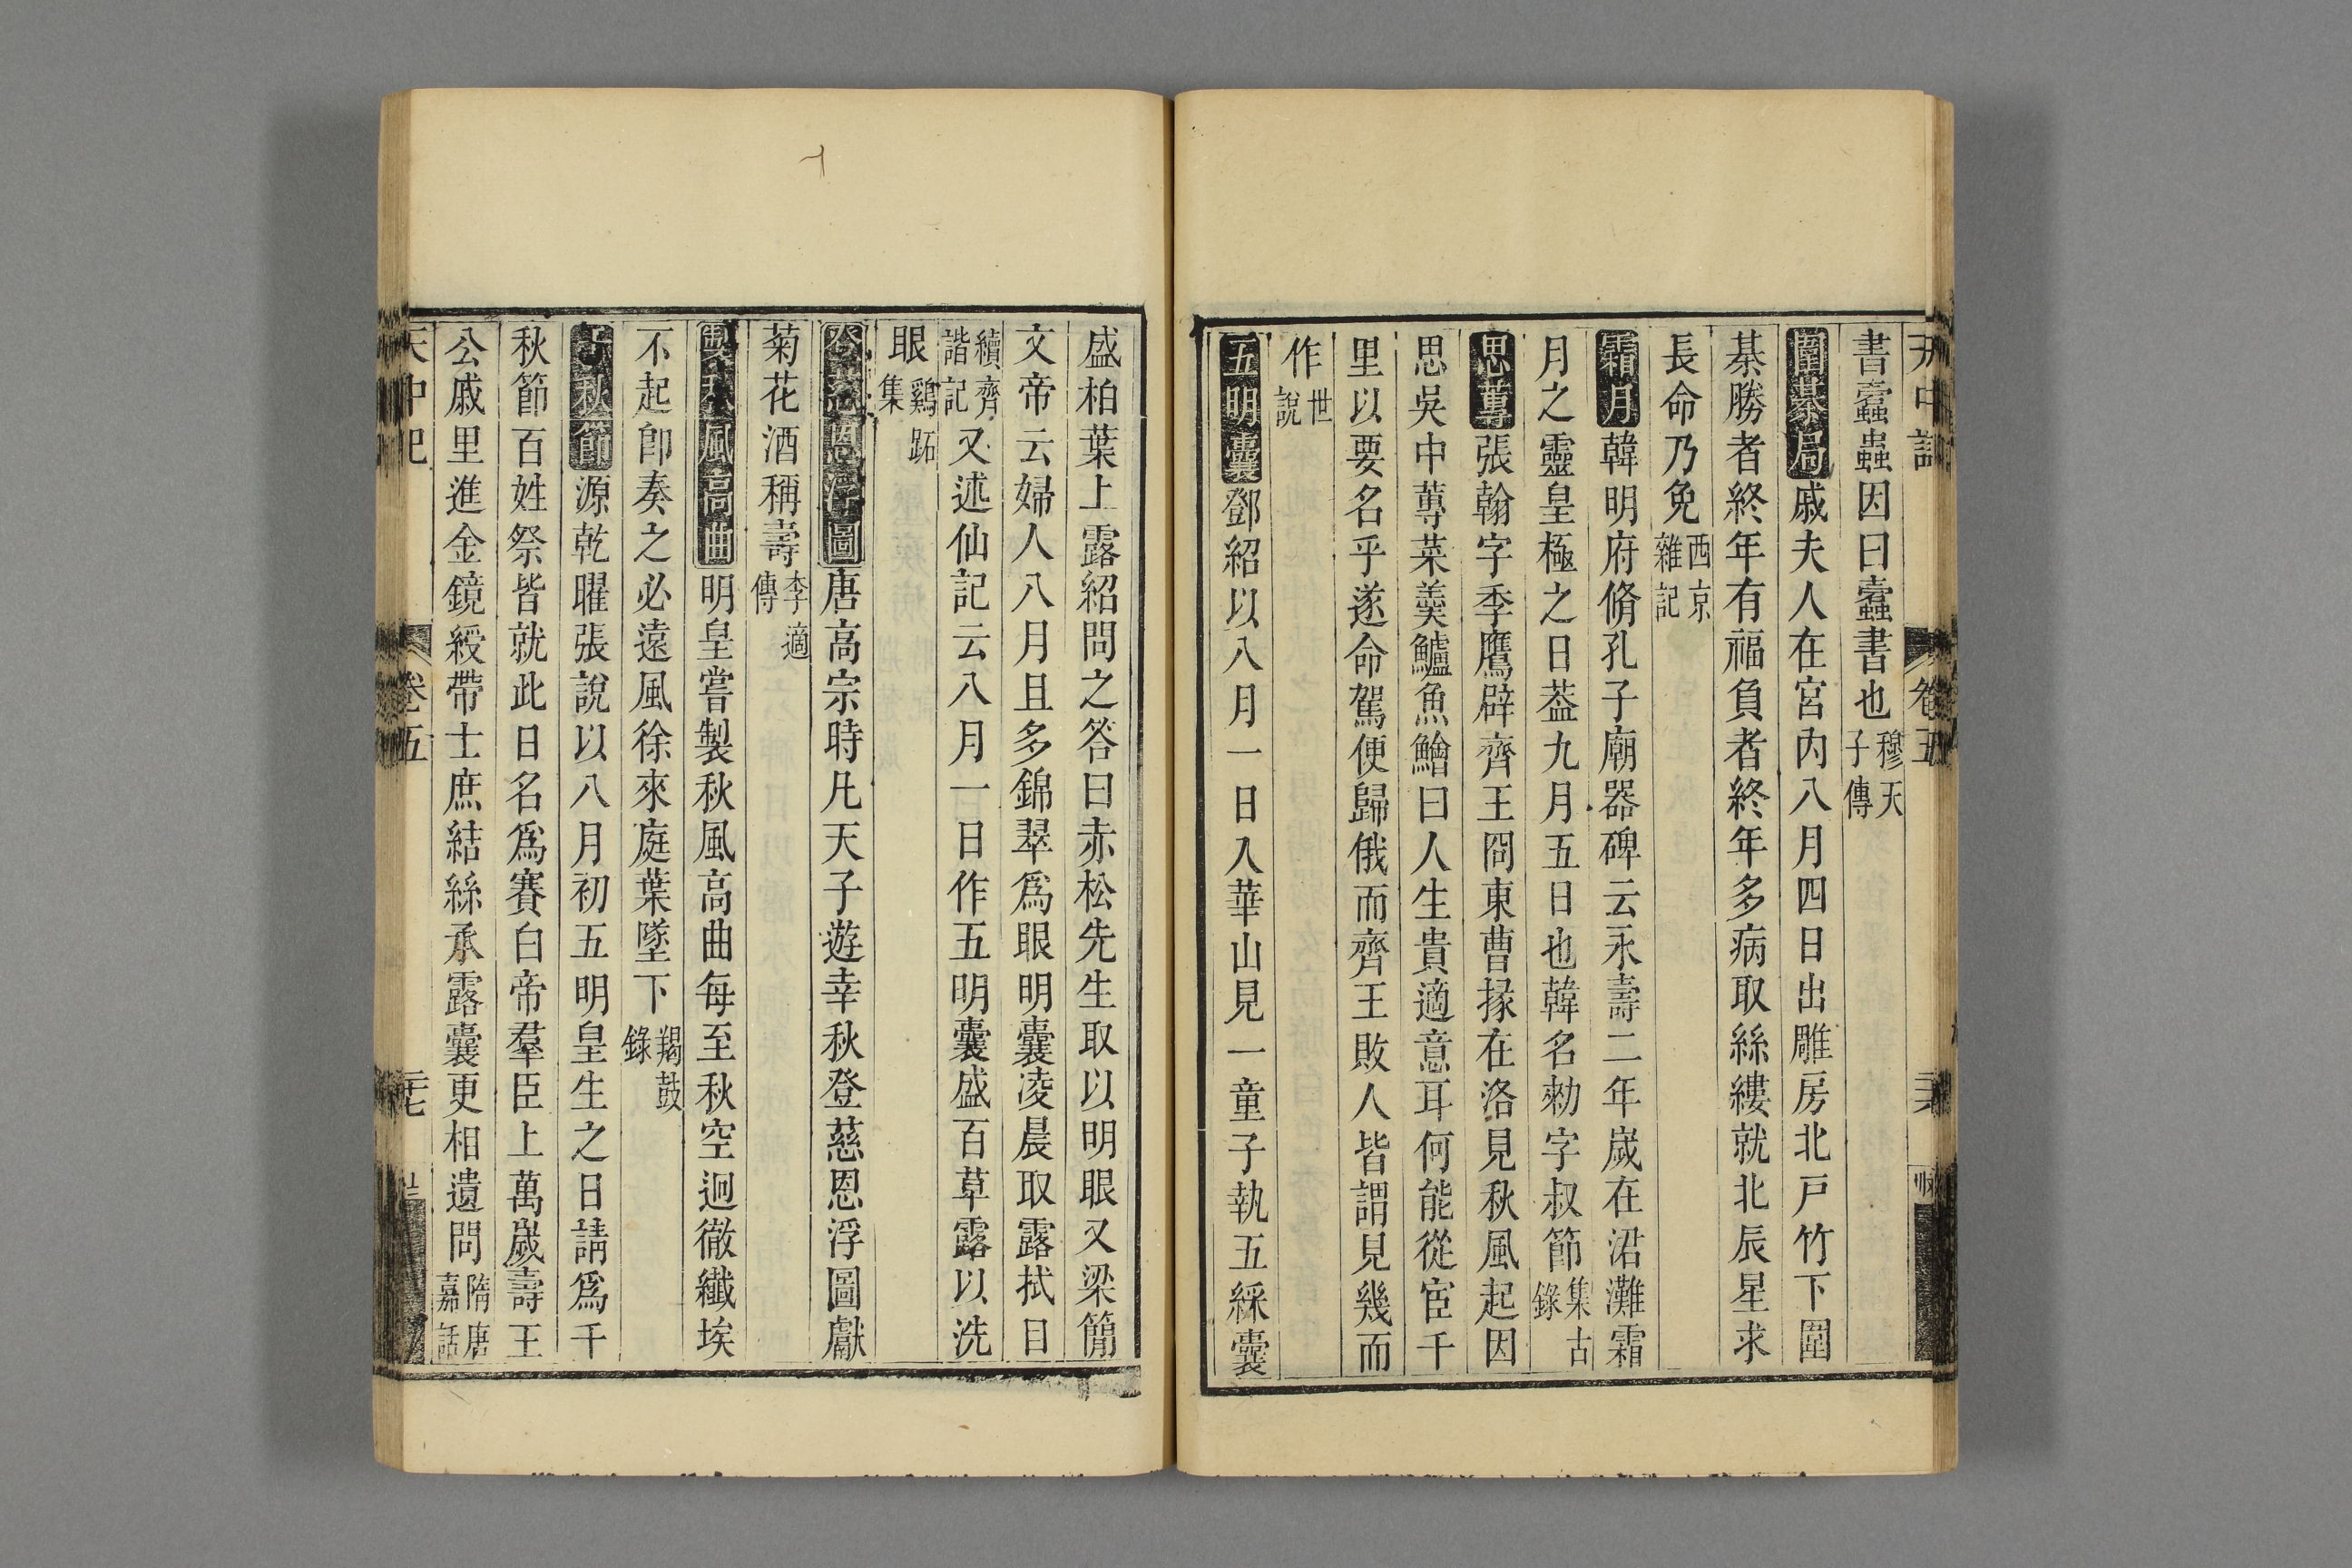 天中記 卷五 三六
書蠧蟲因曰蠧書也穆天子傳
圍棊局戚夫人在宮內八月四日出雕房北戸竹下圍
棊勝者終年有福負者終年多病取絲縷就北辰星求
長命乃免西京雜記
霜月韓明府脩孔子廟器碑云永壽二年嵗在涒灘霜
月之靈皇極之日葢九月五日也韓名勑字叔節集古錄
思蓴張翰字季鷹辟齊王冏東曹掾在洛見秋風起因
思吳中蓴菜羮鱸魚鱠曰人生貴適意耳何能從宦千
里以要名乎遂命駕便歸俄而齊王敗人皆謂見幾而
作世說
五明囊鄧紹以八月一日入華山見一童子執五綵囊
盛柏葉上露紹問之答曰赤松先生取以明眼又梁簡
文帝云婦人八月旦多錦翠爲眼明囊凌晨取露拭日
續齊諧記又述仙記云八月一日作五明囊盛百草露以洗
眼鷄跖集
登慈恩浮圖唐高宗時凡天子遊幸秋登慈恩浮圖獻
菊花酒稱壽李適傳
製秋風高曲明皇嘗製秋風高曲每至秋空迥徹纖埃
不起卽奏之必遠風徐來庭葉墜下羯鼓錄
千秋節源乾曜張說以八月初五明皇生之日請爲千
秋節百姓祭皆就此日名爲賽白帝羣臣上萬嵗壽王
公戚里進金鏡綬帶士庶結絲承露囊更相遺問隋唐嘉話
天中記 卷五 三七